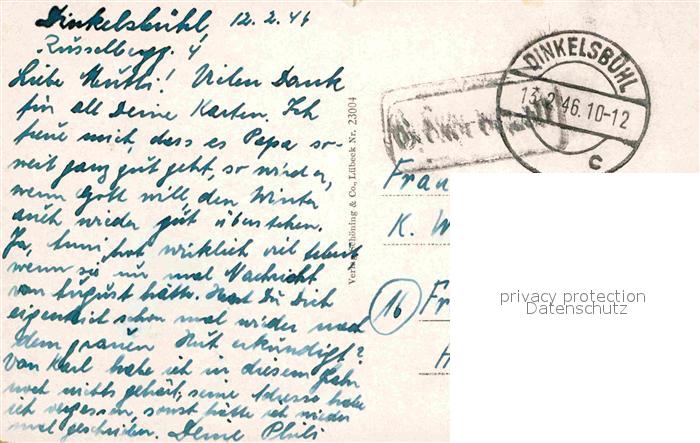 Dinkelsbühl, 12.2.46
Liebe Mutti! Vielen Dank
für all Deine Karten. Ich
freue mich, dass es Papa so-
weit ganz gut geht, so wird er,
wenn Gott will, den Winter
auch wieder gut überstehen.
Ja, Anni hat wirklich viel
wenn sie nur mal Nachricht
von August hätte. Hast Du Dich
eigentlich schon mal wieder nach
dem grauen Hut erkundigt?
Von Karl habe ich in diesem Jahr
noch nichts gehört, seine Adresse habe
ich vergessen, sonst hätte ich wieder
mal geschrieben. Deine
Verlag Schöning & Co., Lübeck Nr. 23004
DINKELSBÜHL
13.2.46.10-12
c
Frau
K. W
16 Fr
privacy protection
Datenschutz